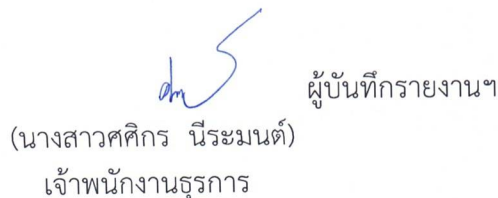 ผู้บันทึกรายงานฯ
(นางสาวศศิกร นีระมนต์)
เจ้าพนักงานธุรการ